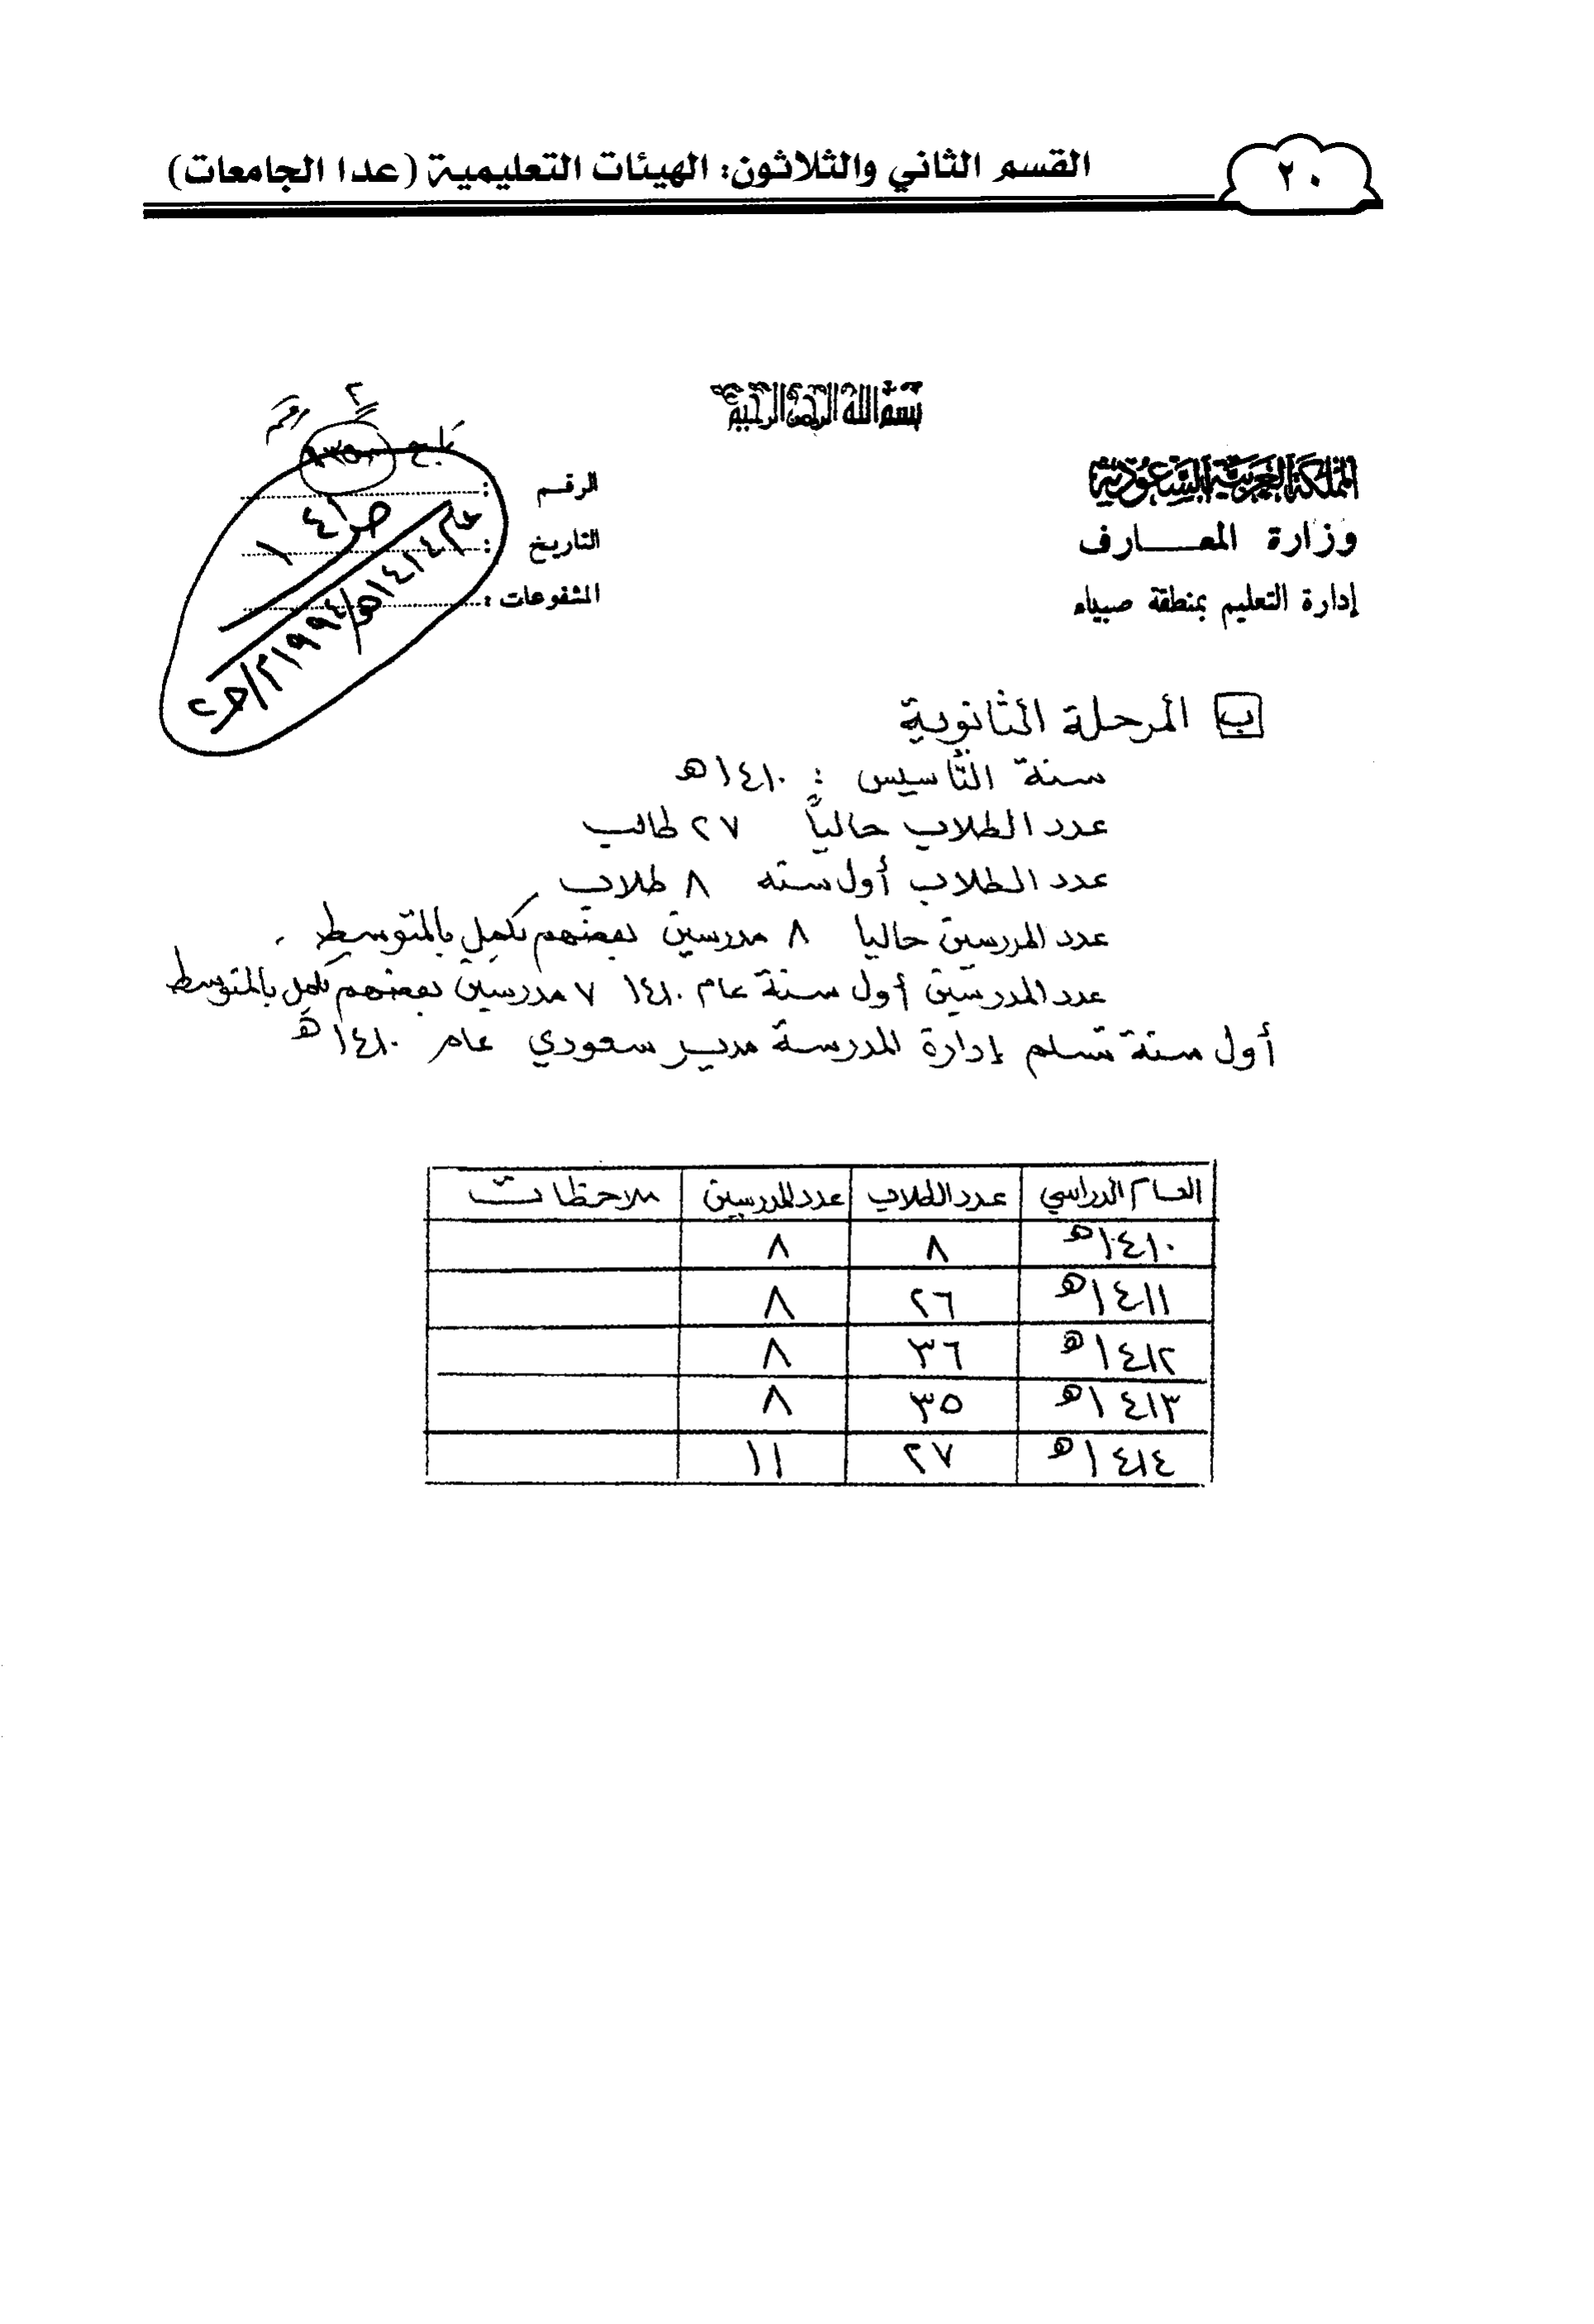 ٢٠
القسم الثاني والثلاثون: الهيئات التعليمية (عدا الجامعات)
بسم الله الرحمن الرحيم
المملكة العربية السعودية
وزارة المعـــــارف
إدارة التعليم بمنطقة صبياء
تابع
الرقم :
التاريخ :
المشفوعات :
ص ١٤١
عام ١٤١٤هـ/١٩٩٤م/
ب المرحلة الثانوية
سنة التأسيس : ١٤١٠هـ
عدد الطلاب حالياً ٢٧ طالب
عدد الطلاب أول سنه ٨ طلاب
عدد المدرسين حاليا ٨ مدرسين بعضهم يكمل بالمتوسط .
عدد المدرسين أول سنة عام ١٤١٠ ٧ مدرسين بعضهم يكمل بالمتوسط
أول سنة تسلم إدارة المدرسة مدير سعودي عام ١٤١٠هـ
العام الدراسي عدد الطلاب عدد المدرسين ملاحظات
١٤١٠هـ ٨ ٨
١٤١١هـ ٢٦ ٨
١٤١٢هـ ٣٦ ٨
١٤١٣هـ ٣٥ ٨
١٤١٤هـ ٢٧ ١١